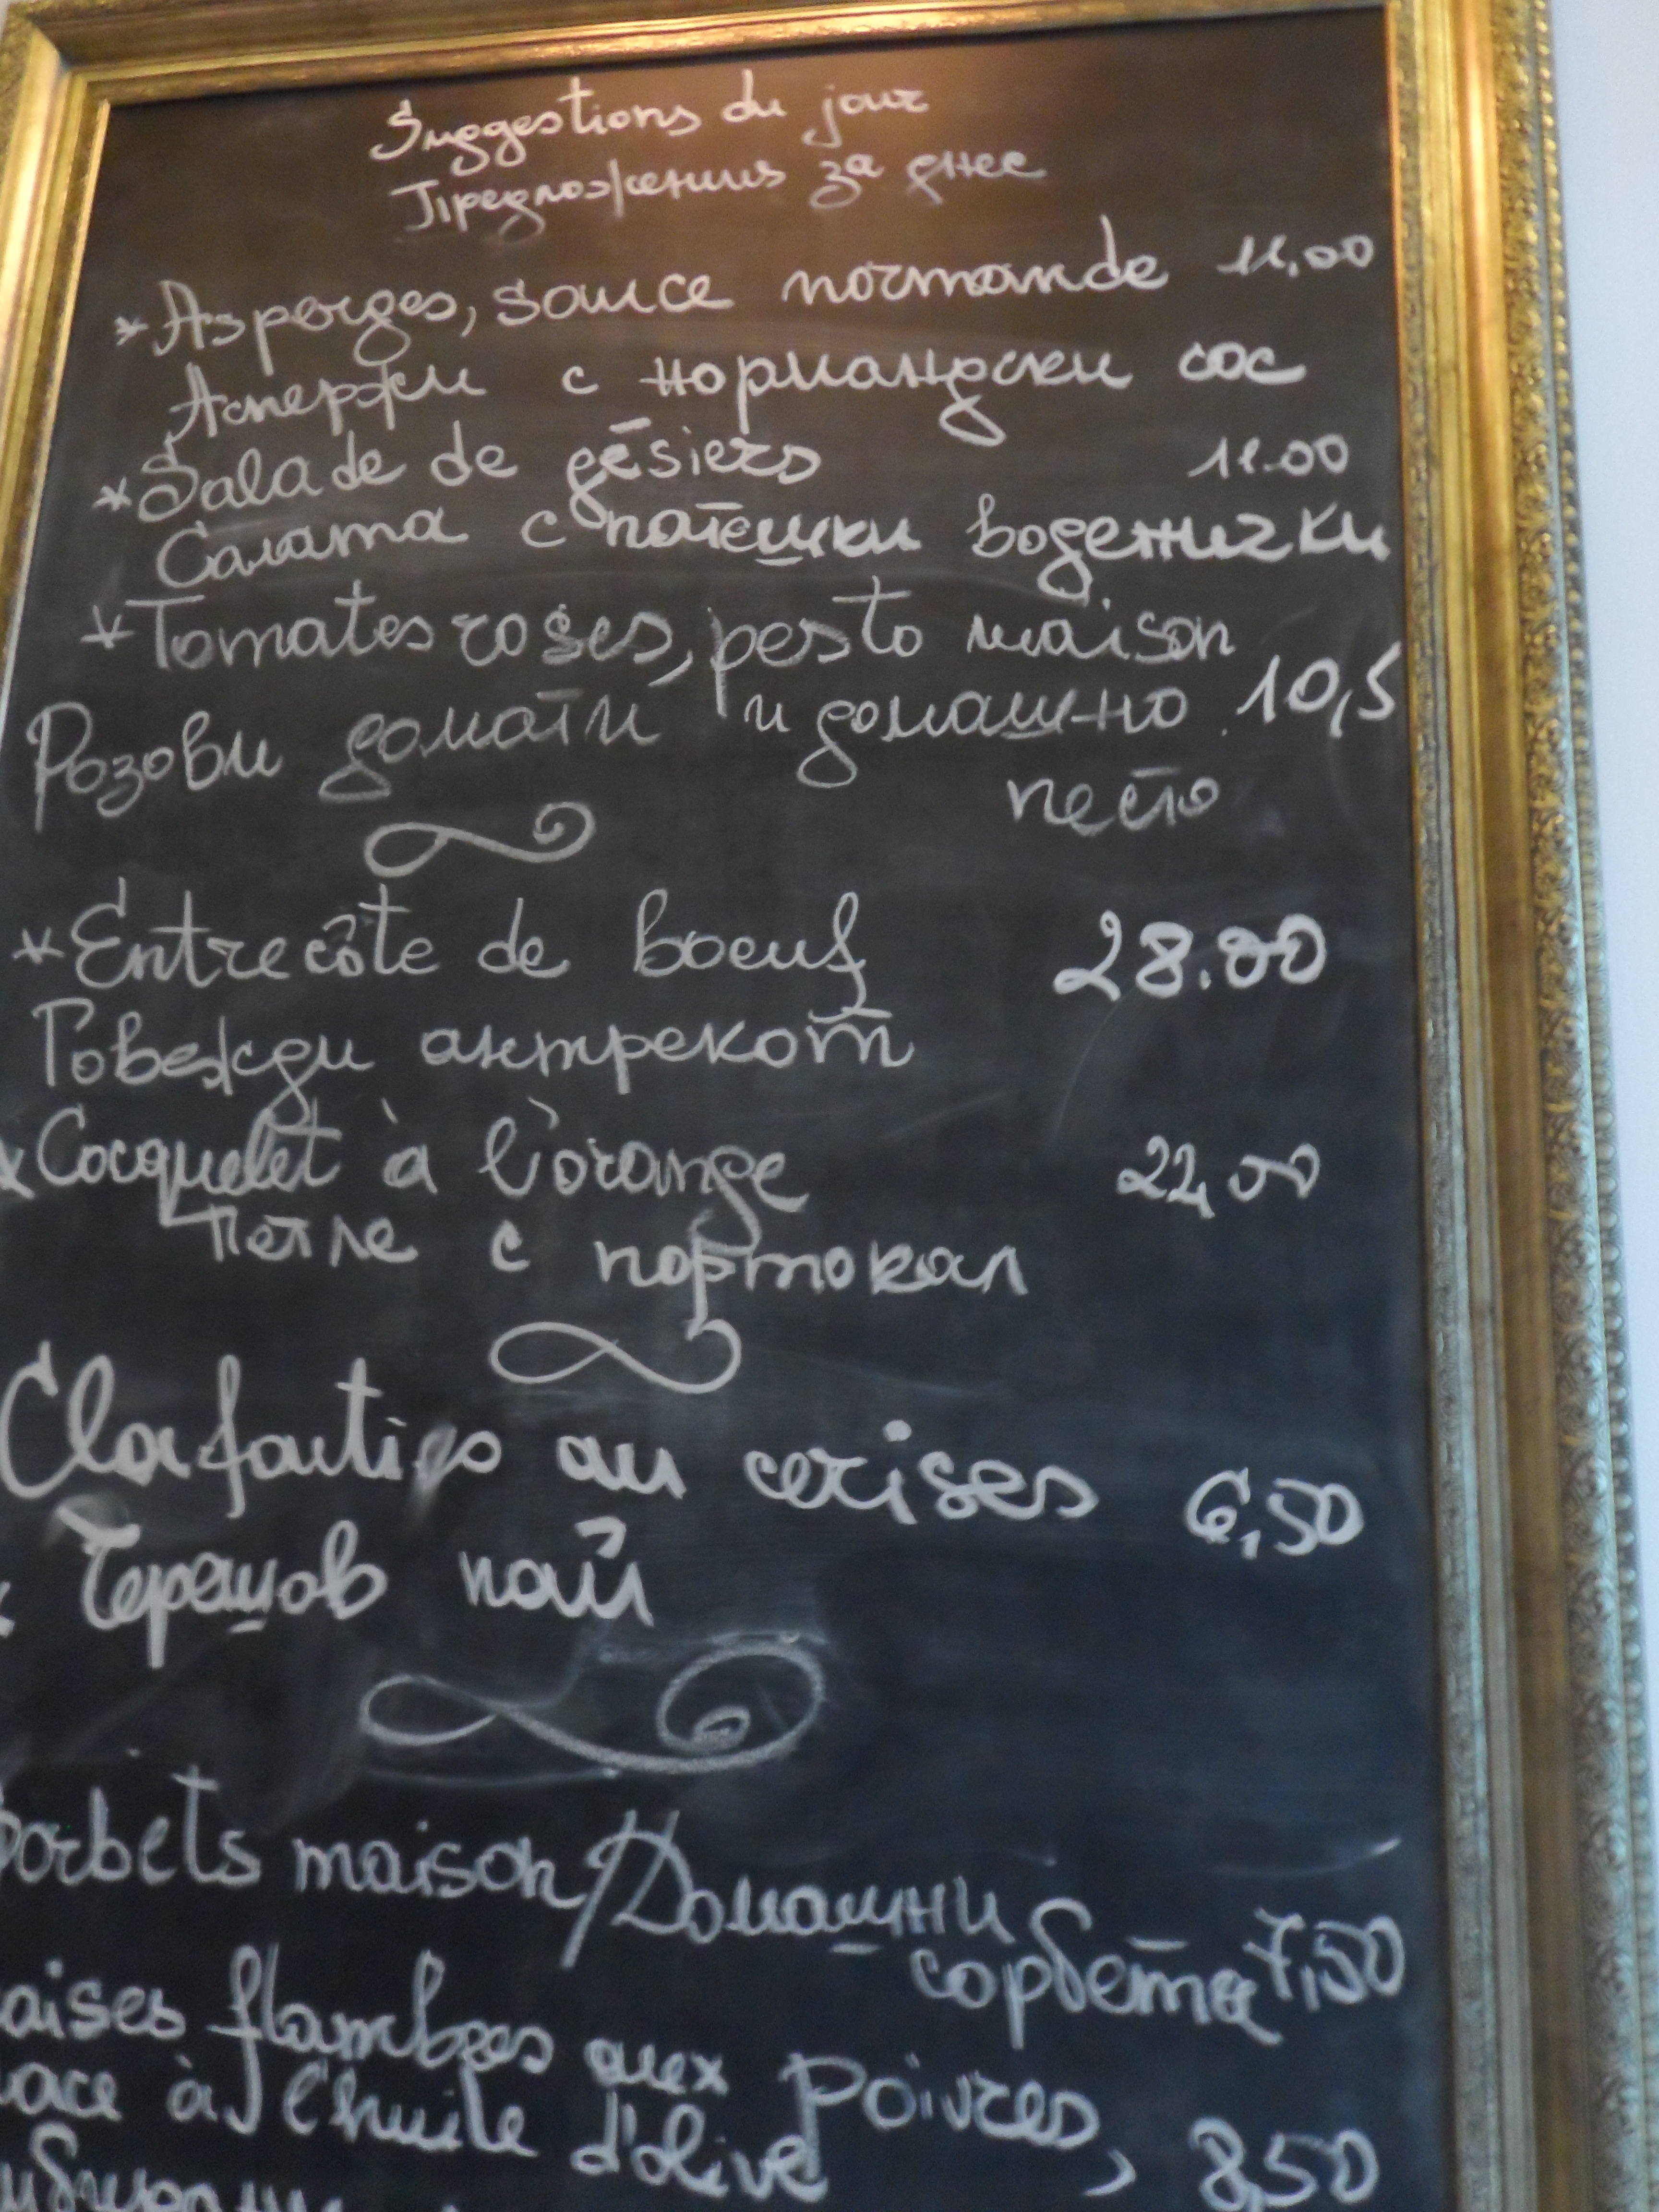 Suggestions du jour
Предложения за днес
*Asperges, sauce normande 11,00
Аспержи с нормандски сос
*Salade de gésiers 11.00
Салата с патешки воденички
*Tomates roses, pesto maison
Розови домати и домашно 10,5
песто
*Entrecôte de boeuf 28.00
Говежди антрекот
*Cocquelet à l'orange 22,00
Петле с портокал
Clafoutips au cerises 6,50
* Черешов пай
Sorbets maison/Домашни
сорбета 7,50
aises flambées aux poivres,
lace à l'huile d'olive 8,50